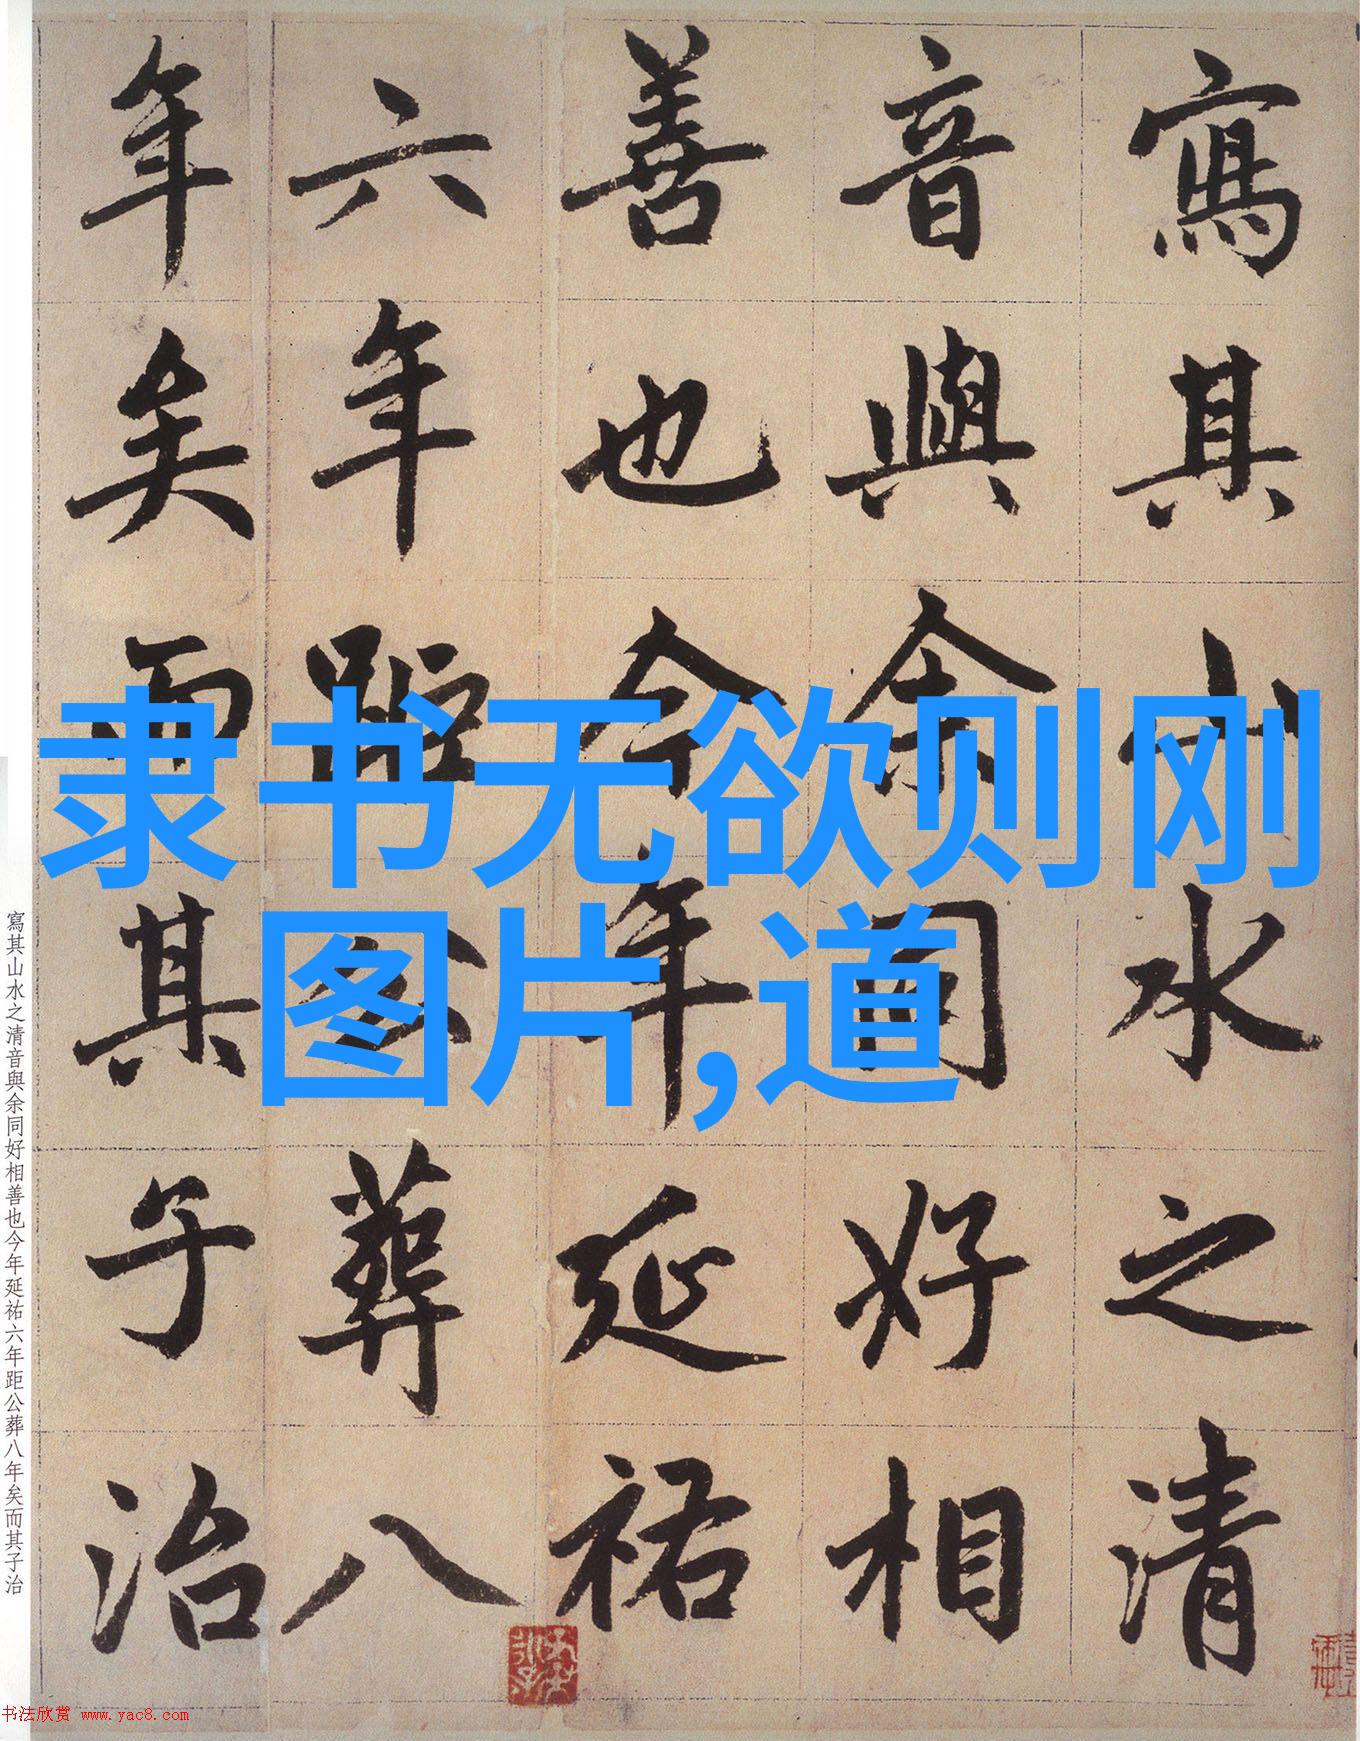 寫其山水之清
音與余同好相
善也今年延祐
六年距公葬八
年矣而其子治
隶书无欲则刚
图片,道
寫其山水之清音與余同好相善也今年延祐六年距公葬八年矣而其子治
书法欣赏 www.yac8.com